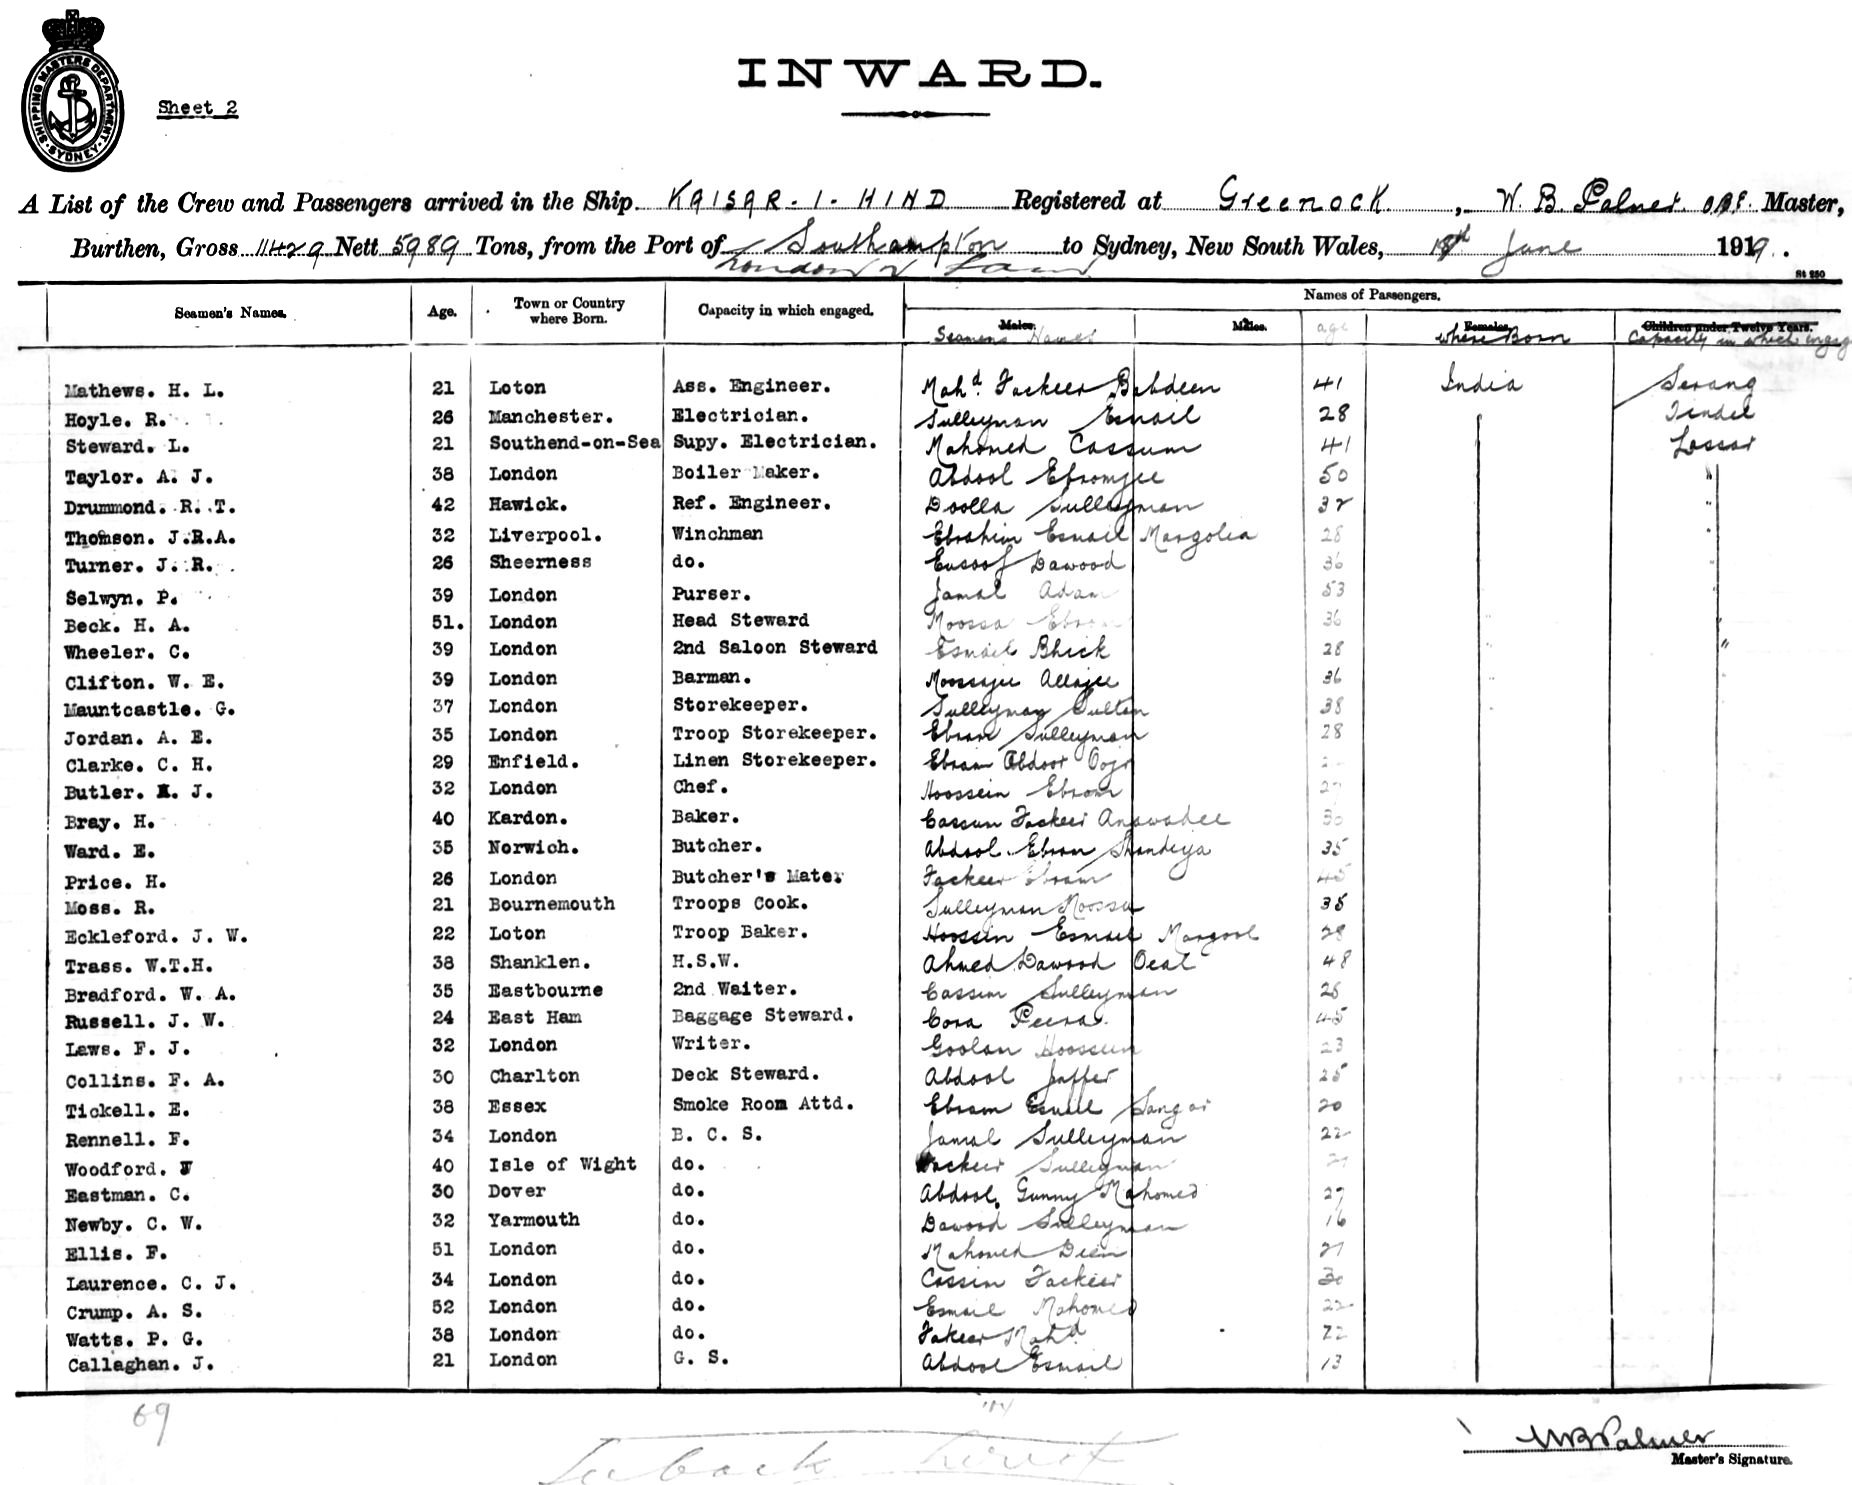 INWARD.
SHIPPING MASTERS DEPARTMENT SYDNEY
Sheet 2
A List of the Crew and Passengers arrived in the Ship KAISAR-I-HIND Registered at Greenock, W. B. Palmer Master,
Burthen, Gross 11429 Nett 5989 Tons, from the Port of Southampton to Sydney, New South Wales, 18th June 1919.
London
St 250
Seamen's Names. Age. Town or Country where Born. Capacity in which engaged. Names of Passengers.
Males. Males. Females. Children under Twelve Years.
Seamens Names age where Born Capacity in which engag
Mathews. H. L. 21 Loton Ass. Engineer. Mahd. Fackeer Bahdeen 41 India Serang
Hoyle. R. 26 Manchester. Electrician. Sulleyman Esmail 28 Tindel
Steward. L. 21 Southend-on-Sea Supy. Electrician. Mahomed Cassum 41 Lascar
Taylor. A. J. 38 London Boiler Maker. Abdool Ebromjee 50 "
Drummond. R. T. 42 Hawick. Ref. Engineer. Doolla Sulleyman 32 "
Thomson. J.R.A. 32 Liverpool. Winchman Ebrahim Esmail Mangolia 28 "
Turner. J. R. 26 Sheerness do. Eusoof Dawood 36 "
Selwyn. P. 39 London Purser. Jamal Adam 53
Beck. H. A. 51. London Head Steward Moossa Ebram 36 "
Wheeler. C. 39 London 2nd Saloon Steward Esmail Bhick 28 "
Clifton. W. E. 39 London Barman. Moossajee Allajee 36
Mauntcastle. G. 37 London Storekeeper. Sulleyman Sultan 38
Jordan. A. E. 35 London Troop Storekeeper. Ebram Sulleyman 28
Clarke. C. H. 29 Enfield. Linen Storekeeper. Ebram Abdoor
Butler. A. J. 32 London Chef. Hoossein Ebram 27
Bray. H. 40 Kardon. Baker. Cassum Fackeer Anawadee 30
Ward. E. 35 Norwich. Butcher. Abdool Ebram Shandeya 35
Price. H. 26 London Butcher's Mate. Fackeer Ebram 45
Moss. R. 21 Bournemouth Troops Cook. Sulleyman Moossa 35
Eckleford. J. W. 22 Loton Troop Baker. Hoossin Esmail Mangool 28
Trass. W.T.H. 38 Shanklen. H.S.W. Ahmed Dawood Ocat 48
Bradford. W. A. 35 Eastbourne 2nd Waiter. Cassim Sulleyman 28
Russell. J. W. 24 East Ham Baggage Steward. Cora Peera. 45
Laws. F. J. 32 London Writer. Goolam Hoossein 23
Collins. F. A. 30 Charlton Deck Steward. Abdool Jaffer 25
Tickell. E. 38 Essex Smoke Room Attd. Ebram Esmail Sangar 20
Rennell. F. 34 London B. C. S. Jamal Sulleyman 22
Woodford. 40 Isle of Wight do. Fackeer Sulleyman 21
Eastman. C. 30 Dover do. Abdool Gunny Mahomed 27
Newby. C. W. 32 Yarmouth do. Dawood Sulleyman 16
Ellis. F. 51 London do. Mahomed Deen 21
Laurence. C. J. 34 London do. Cassim Fackeer 30
Crump. A. S. 52 London do. Esmail Mahomed 22
Watts. P. G. 38 London do. Fakeer Mahd 22
Callaghan. J. 21 London G. S. Abdool Esmail 13
69
WBPalmer
Master's Signature.